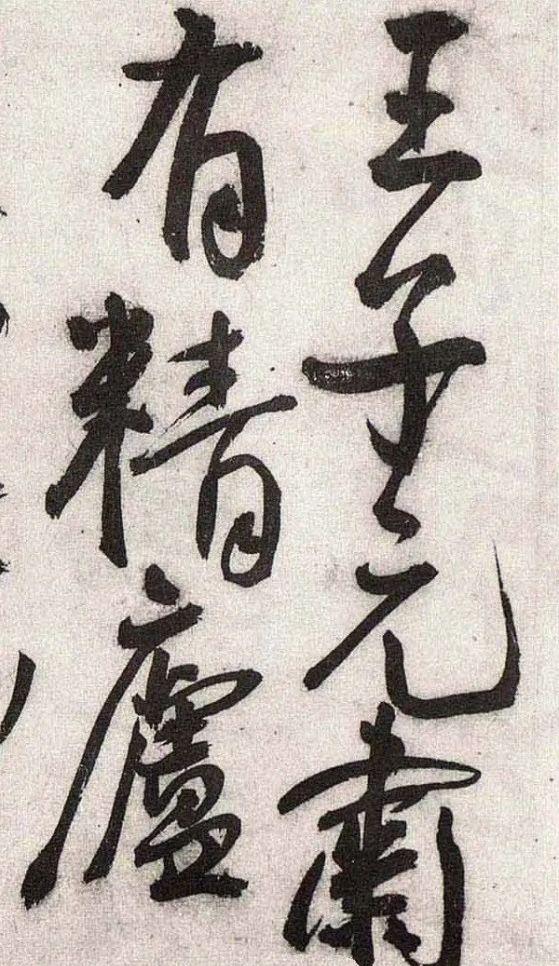 王子元肅
有精廬